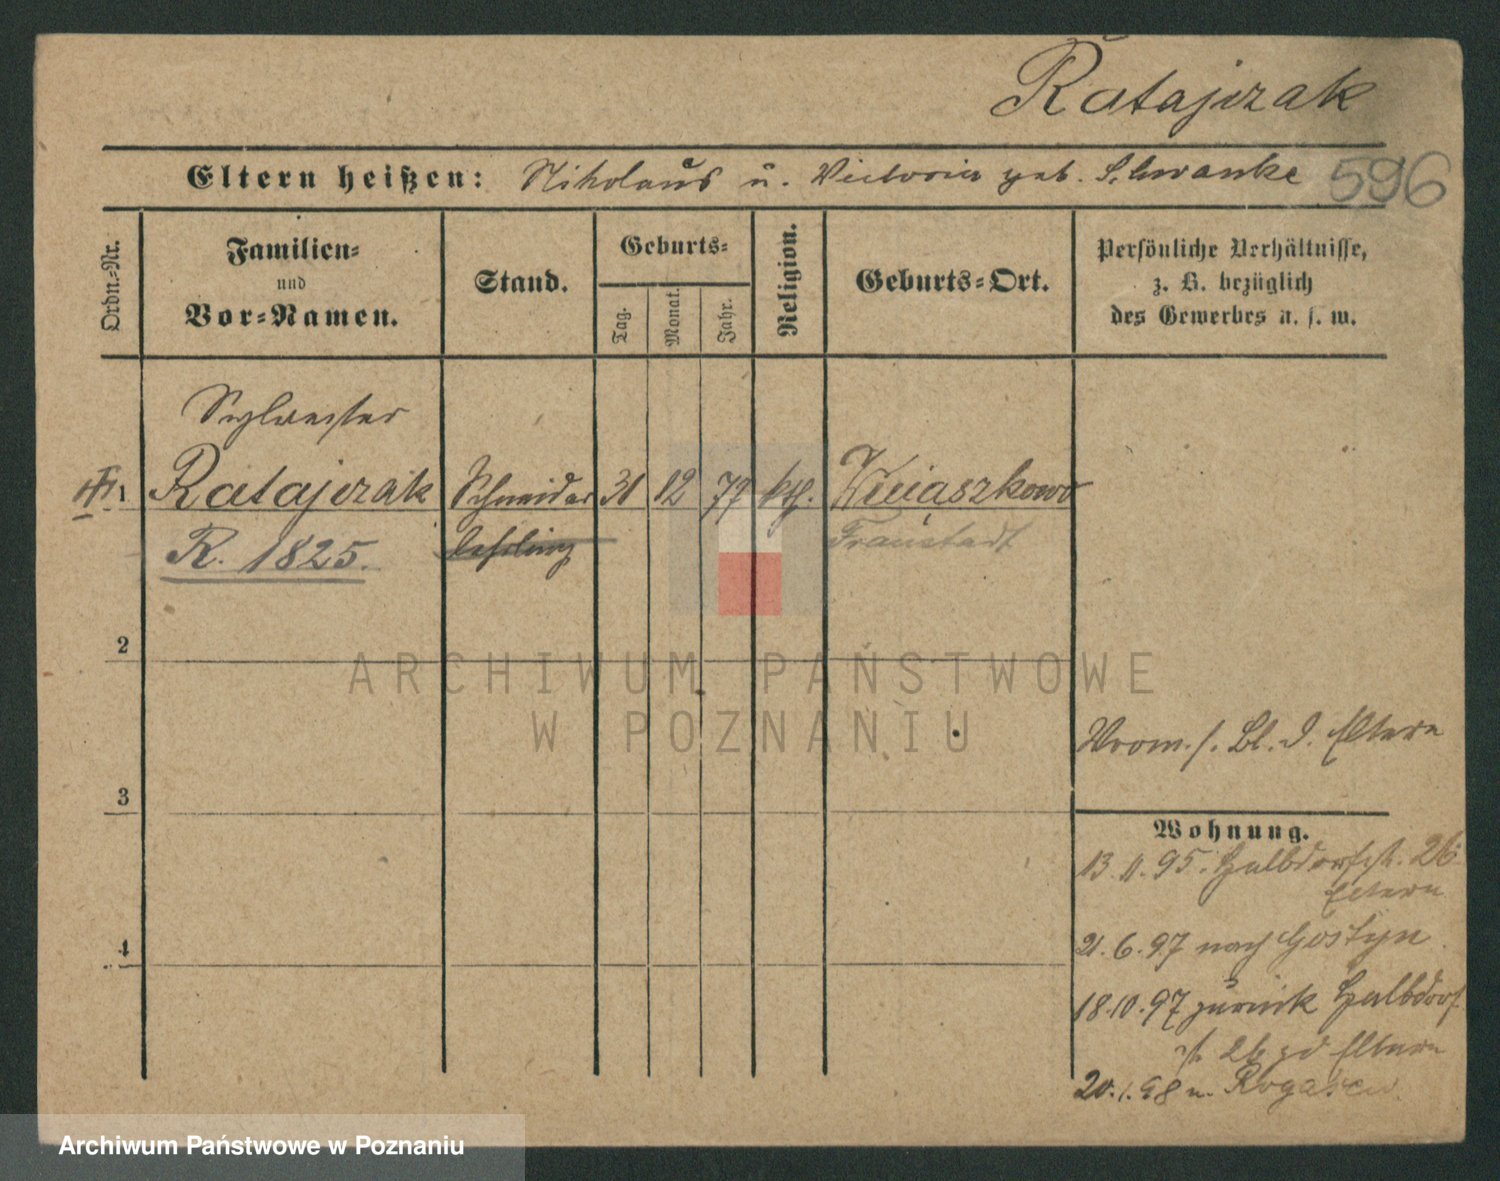 Ratajczak
Eltern heißen: Nikolaus u. Victoria geb. Schwanke 596
Ordn.-Nr.
Familien-
und
Vor-Namen.
Stand.
Geburts-
Tag.
Monat.
Jahr.
Religion.
Geburts-Ort.
Persönliche Verhältnisse,
z. B. bezüglich
des Gewerbes u. s. w.
Sylwester
1 Ratajczak Schneider 31 12 77 kth.
R. 1825. lehrling Fraustadt
2
ARCHIWUM PAŃSTWOWE
W POZNANIU
Vrom. s. Bl. d. Eltern
3
Wohnung.
13.11.95. Halbdorfstr. 26
Eltern
4
21.6.97 nach Gostyn
18.10.97 zurück Halbdorf
str 26 zd Eltern
20.1.98 n. Rogasen
Archiwum Państwowe w Poznaniu